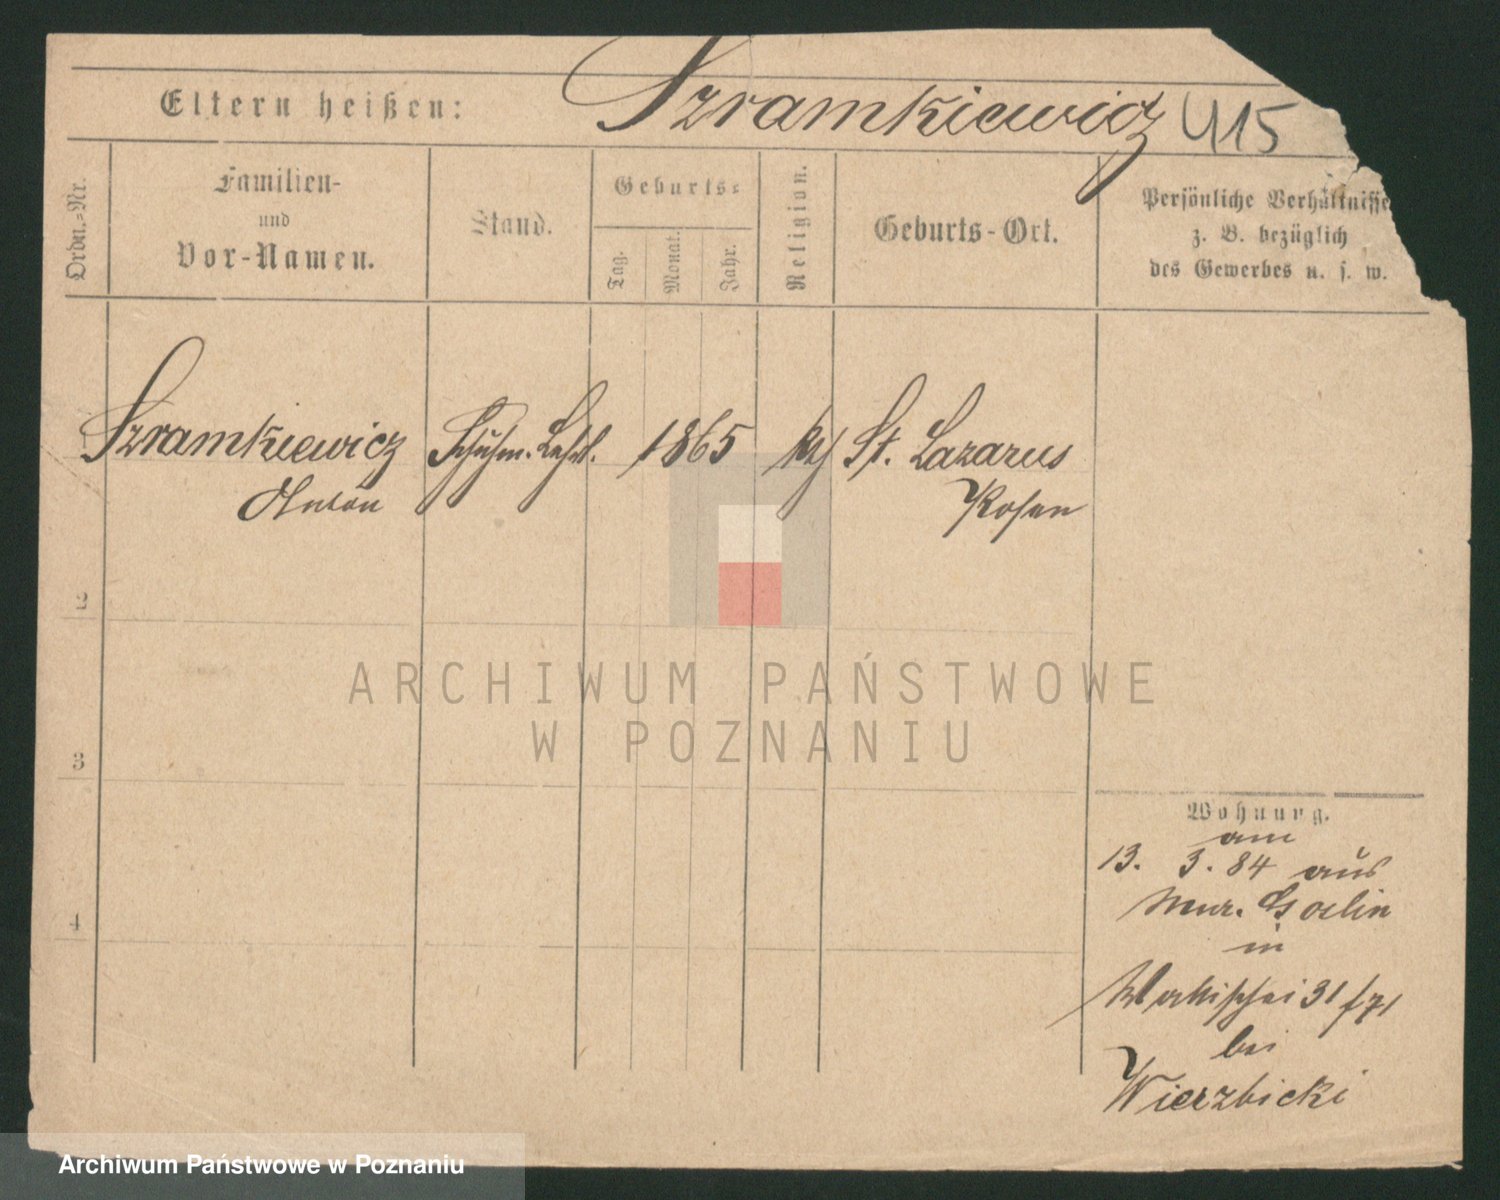 Szramkiewicz 415
Eltern heißen:
Ordn.=Nr.
Familien-
und
Vor-Namen.
Stand.
Geburts=
Tag.
Monat.
Jahr.
Religion.
Geburts-Ort.
Persönliche Verhältnisse
z. B. bezüglich
des Gewerbes u. s. w.
Szramkiewicz Schuhm. Lehrl. 1865 St. Lazarus
Anton Posen
2
3
4
Wohnung.
am
13. 3. 84 aus
Mur. Goslin
in
Wallischei 31/71
bei
Wierzbicki
ARCHIWUM PAŃSTWOWE
W POZNANIU
Archiwum Państwowe w Poznaniu